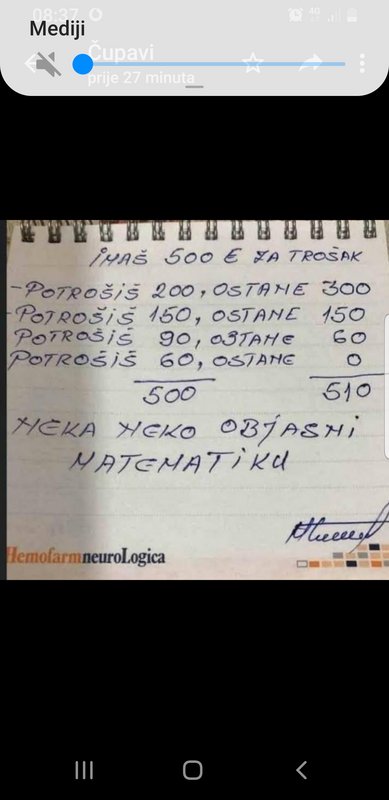 08:37
4G
Mediji
Čupavi
prije 27 minuta
IMAŠ 500 € ZA TROŠAK
-POTROŠIŠ 200, OSTANE 300
-POTROŠIŠ 150, OSTANE 150
POTROŠIŠ 90, OSTANE 60
POTROŠIŠ 60, OSTANE 0
500 510
NEKA NEKO OBJASNI
MATEMATIKU
HemofarmneuroLogica